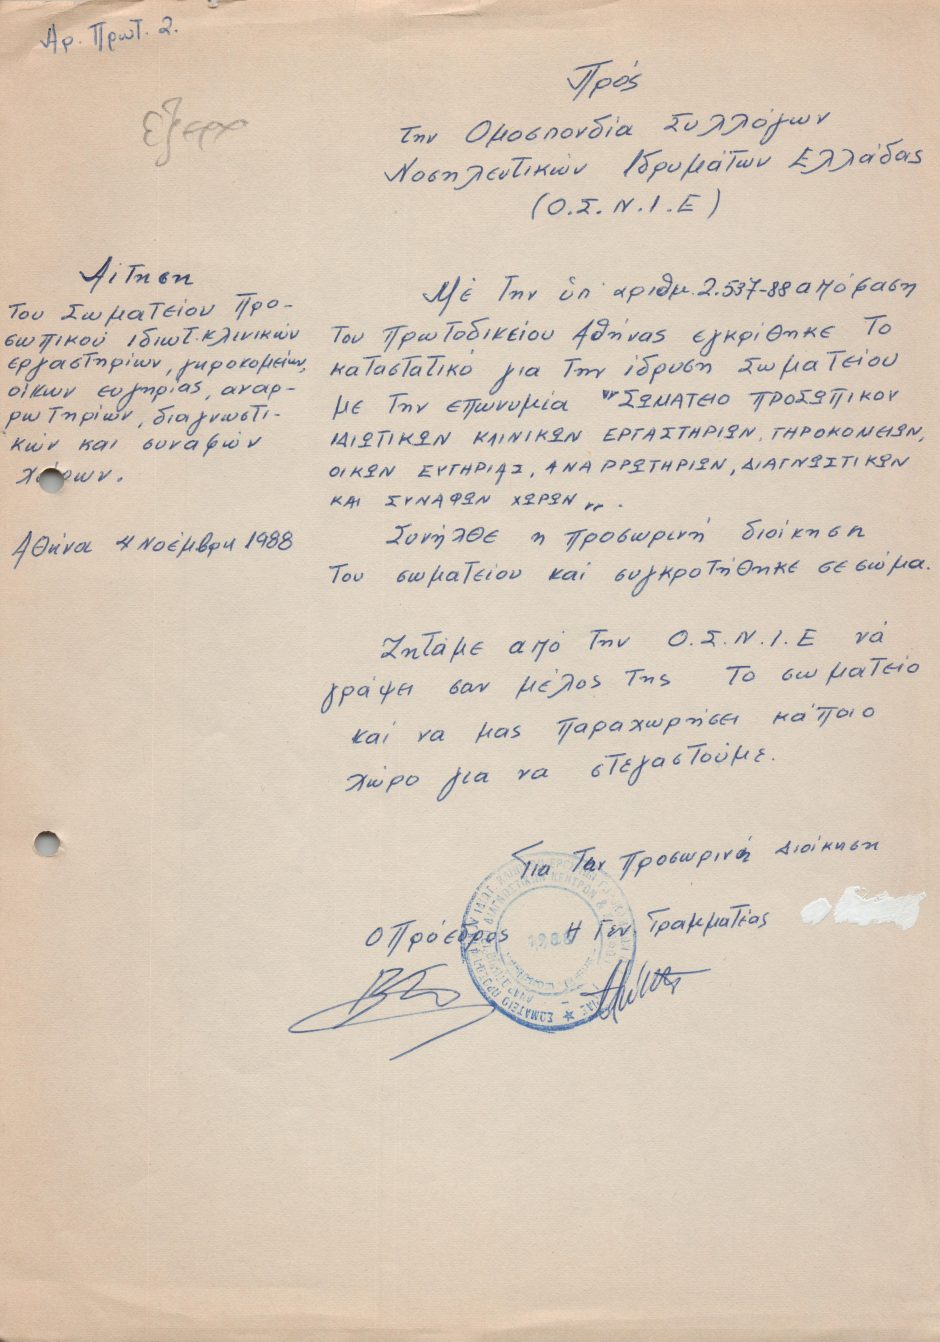 Αρ. Πρωτ. 2.
Εξερχ
Πρός
την Ομοσπονδία Συλλόγων
Νοσηλευτικών Ιδρυμάτων Ελλάδας
(Ο.Σ.Ν.Ι.Ε)
Αίτηση
του Σωματείου Προ-
σωπικού ιδιωτ. κλινικών
εργαστηρίων, γηροκομείων,
οίκων ευγηρίας, αναρ-
ρωτηρίων, διαγνωστι-
κών και συναφών
χώρων.
Αθήνα 4 Νοέμβρη 1988
Μέ την ύπ' αριθμ. 2.537-88 απόφαση
του Πρωτοδικείου Αθήνας εγκρίθηκε το
καταστατικό για την ίδρυση Σωματείου
με την επωνυμία "ΣΩΜΑΤΕΙΟ ΠΡΟΣΩΠΙΚΟΥ
ΙΔΙΩΤΙΚΩΝ ΚΛΙΝΙΚΩΝ ΕΡΓΑΣΤΗΡΙΩΝ, ΓΗΡΟΚΟΜΕΙΩΝ,
ΟΙΚΩΝ ΕΥΓΗΡΙΑΣ, ΑΝΑΡΡΩΤΗΡΙΩΝ, ΔΙΑΓΝΩΣΤΙΚΩΝ
ΚΑΙ ΣΥΝΑΦΩΝ ΧΩΡΩΝ".
Συνήλθε η προσωρινή διοίκηση
του σωματείου καί συγκροτήθηκε σε σώμα.
Ζητάμε από την Ο.Σ.Ν.Ι.Ε νά
γράψει σαν μέλος της το σωματείο
καί να μας παραχωρήσει κάποιο
χώρο για να στεγαστούμε.
Για την προσωρινή Διοίκηση
Ο Πρόεδρος Η Γεν Γραμματέας
ΣΩΜΑΤΕΙΟ
1988